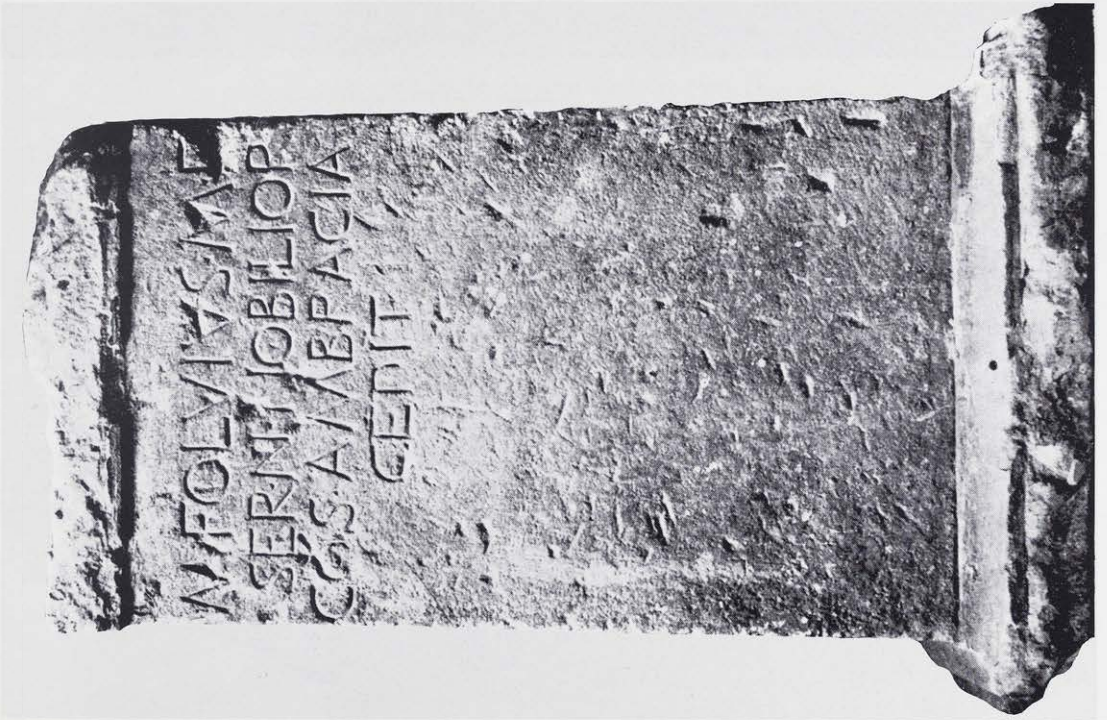 M FOLVIVS M F
SER N NOBILIOR
COS AMBRACIA
CEPIT